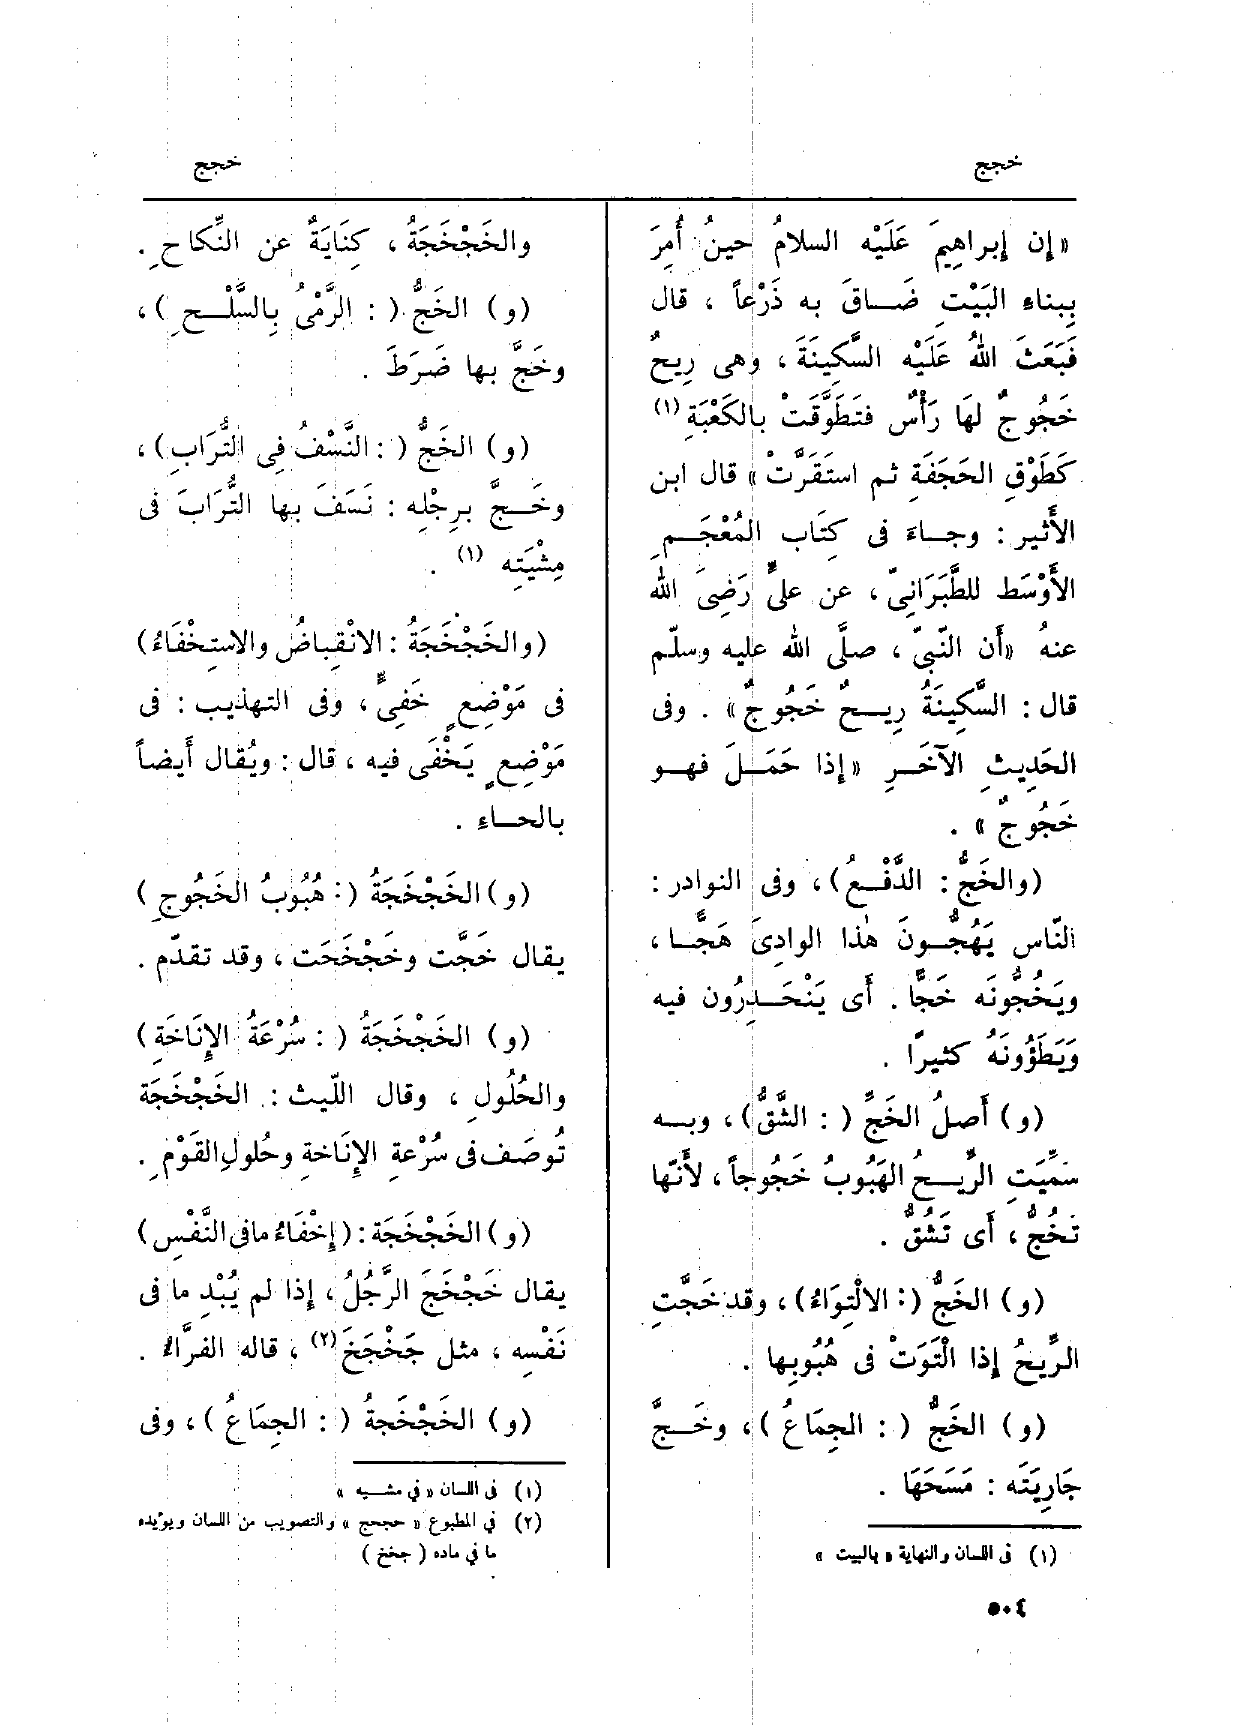 خجج
خجج
«إن إبراهِيمَ عَلَيْه السلامُ حينُ أُمِرَ
بِبناء البَيْتِ ضَاقَ به ذَرْعاً ، قال
فَبَعَثَ اللهُ عَلَيْه السَّكِينَةَ ، وهى رِيحٌ
خَجُوجٌ لهَا رَأْسٌ فتَطَوَّقَتْ بالكَعْبَةِ (١)
كَطَوْقِ الحَجَفَةِ ثم استَقَرَّتْ» قال ابن
الأَثير : وجاءَ فى كِتَاب المُعْجَمِ
الأَوْسَط للطَّبَرَانِىّ ، عن علىٍّ رَضِىَ الله
عنهُ «أَن النّبِىّ ، صلَّى الله عليه وسلّم
قال : السَّكِينَةُ رِيحٌ خَجُوجٌ» . وفى
الحَدِيثِ الآخَرِ «إذا حَمَلَ فهو
خَجُوجٌ» .
(والخَجُّ : الدَّفْعُ) ، وفى النوادر :
النّاس يَهُجُّونَ هٰذا الوادِىَ هَجًّا ،
ويَخُجُّونَه خَجًّا . أَى يَنْحَدِرُون فيه
وَيَطَؤُونَهُ كثيرًا .
(و) أَصلُ الخَجِّ ( : الشَّقُّ) ، وبه
سُمِّيَتِ الرِّيحُ الهَبُوبُ خَجُوجاً ، لأَنّها
تَخُجُّ ، أَى تَشُقُّ .
(و) الخَجُّ (: الالْتِوَاءُ) ، وقد خَجَّتِ
الرِّيحُ إذا الْتَوَتْ فى هُبُوبِها .
(و) الخَجُّ ( : الجِمَاعُ) ، وخَجَّ
جَارِيَتَه : مَسَحَهَا .
(١) فى اللسان والنهاية « بالبيت »
والخَجْخَجَةُ ، كِنَايَةٌ عن النِّكاحِ .
(و) الخَجُّ ( : الرَّمْىُ بِالسَّلْحِ ) ،
وخَجَّ بها ضَرَطَ .
(و) الخَجُّ ( : النَّسْفُ فِى التُّرَابِ) ،
وخَجَّ برِجْلِه : نَسَفَ بها التُّرَابَ فى
مِشْيَتِه (١) .
(والخَجْخَجَةُ : الانْقِباضُ والاستِخْفَاءُ)
فى مَوْضِعٍ خَفِىٍّ ، وفى التهذيب : فى
مَوْضِعٍ يَخْفَى فيه ، قال : ويُقال أَيضاً
بالحاء .
(و) الخَجْخَجَةُ (: هُبُوبُ الخَجُوجِ)
يقال خَجَّت وخَجْخَجَت ، وقد تقدّم .
(و) الخَجْخَجَةُ ( : سُرْعَةُ الإِنَاخَةِ)
والحُلُولِ ، وقال اللّيث : الخَجْخَجَة
تُوصَف فى سُرْعَةِ الإِنَاخةِ وحُلولِ القَوْمِ .
(و) الخَجْخَجَة : (إِخْفَاءُ ما فى النَّفْسِ)
يقال خَجْخَجَ الرَّجُلُ ، إذا لم يُبْدِ ما فى
نَفْسِه ، مثل جَخْجَخَ (٢) ، قاله الفرَّاءُ .
(و) الخَجْخَجةُ ( : الجِمَاعُ) ، وفى
(١) فى اللسان « فى مشيه »
(٢) فى المطبوع « حجحج » والتصويب من اللسان ويؤيده
ما فى ماده ( جخخ )
٥٠٤